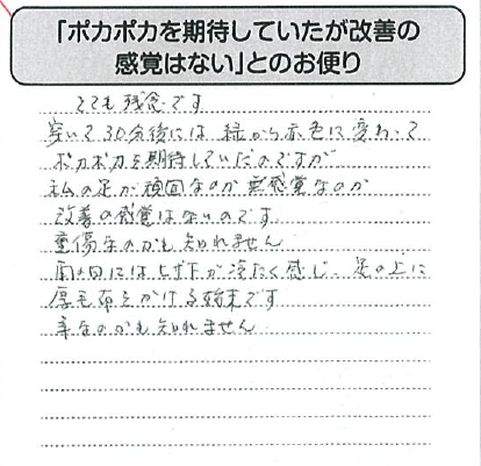 「ポカポカを期待していたが改善の
感覚はない」とのお便り
とても残念です
穿いて30分後には 緑から赤色に変わって
ポカポカを期待していたのですが
私の足が頑固なのか 無感覚なのか
改善の感覚はないのです
重傷なのかも知れません
雨の日には 靴下が冷たく感じ、足の上に
厚毛布をかける始末です
年なのかも知れません